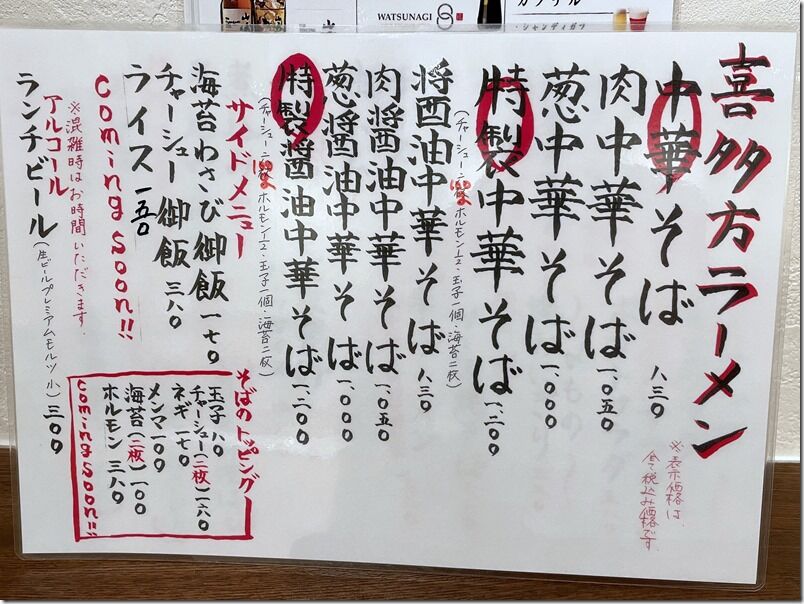 WATSUNAGI
喜多方ラーメン
中華そば 八三〇
肉中華そば 一、〇五〇
葱中華そば 一、〇〇〇
特製中華そば 一、二〇〇
ホルモン1/2、玉子一個・海苔二枚)
醤油中華そば 八三〇
肉醤油中華そば 一、〇五〇
葱醤油中華そば 一、〇〇〇
特製醤油中華そば 一、二〇〇
ホルモン1/2、玉子一個・海苔二枚)
※表示価格は、
全て税込み価格です。
サイドメニュー
海苔わさび御飯 一七〇
チャーシュー御飯 三八〇
ライス 一五〇
coming soon!!
※混雑時はお時間いただきます。
アルコール
ランチビール(生ビールプレミアムモルツ 小) 三〇〇
そばのトッピング
玉子 八〇
チャーシュー(二枚) 一六〇
ネギ 一七〇
メンマ 一〇〇
海苔(二枚) 一〇〇
ホルモン 三八〇
coming soon!!